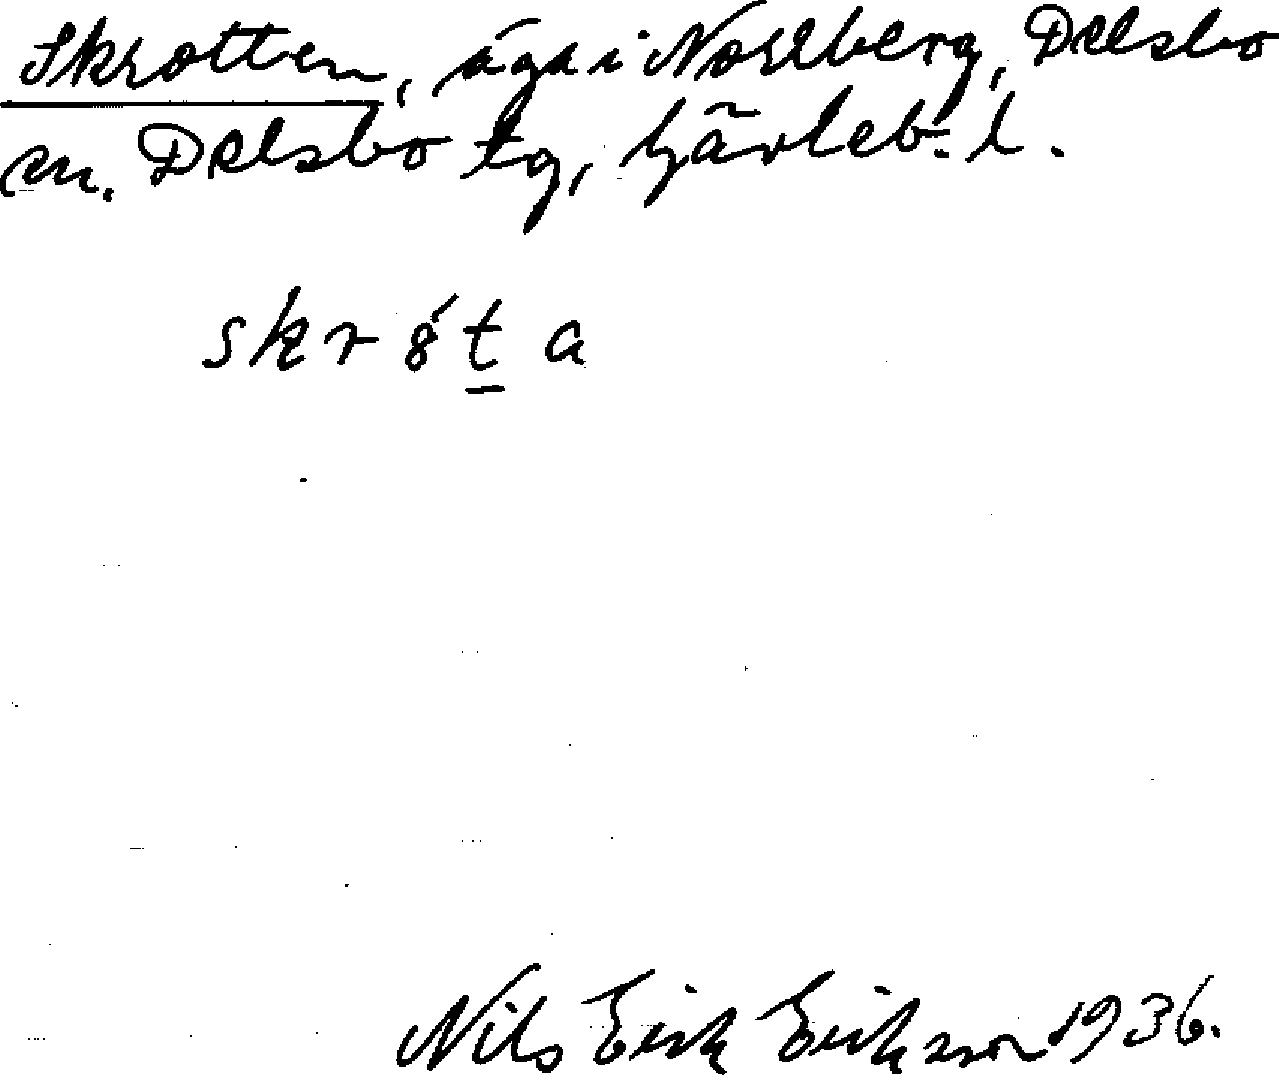 Skrotten, äga i Norrberg, Delsbo
sn. Delsbo tg, Gävleb. l.
skr o ́t a
Nils Erik Eriksson 1936.